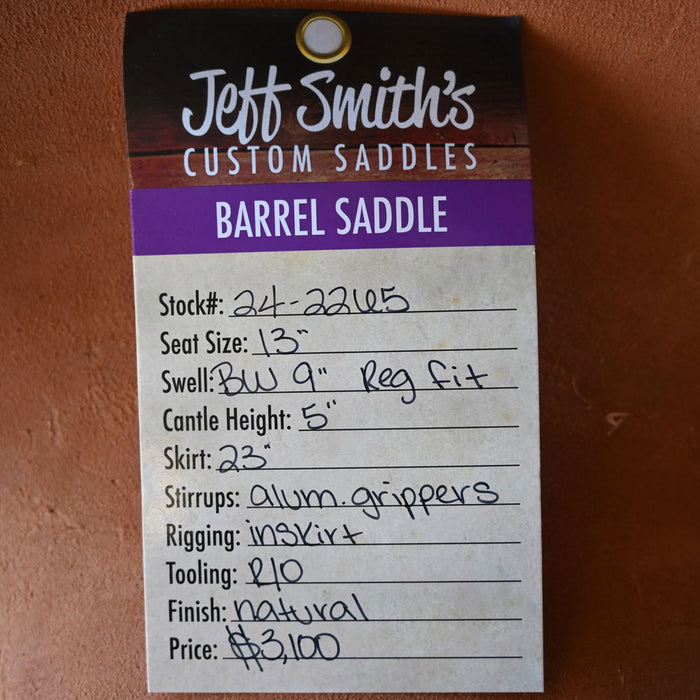 Jeff Smith's
CUSTOM SADDLES
BARREL SADDLE
Stock#: 24-2265
Seat Size: 13"
Swell: BW 9" Reg fit
Cantle Height: 5"
Skirt: 23"
Stirrups: alum. grippers
Rigging: inskirt
Tooling: R10
Finish: natural
Price: $3,100